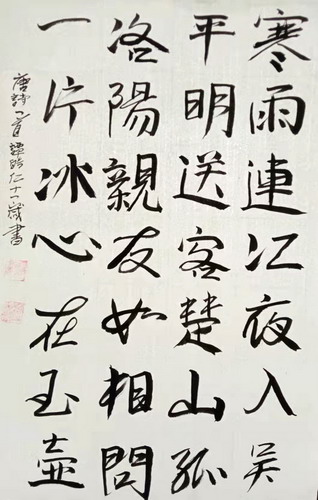 寒雨連江夜入吴
平明送客楚山孤
洛陽親友如相問
一片冰心在玉壺
唐詩一首 仁十一歲書